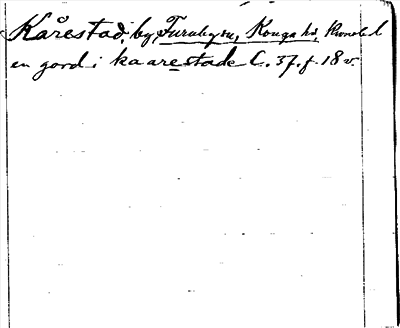 Kårestad, by, Furuby sn, Konga hd, Kronob. l
en gord i kaarestade C. 37. f. 18 v.